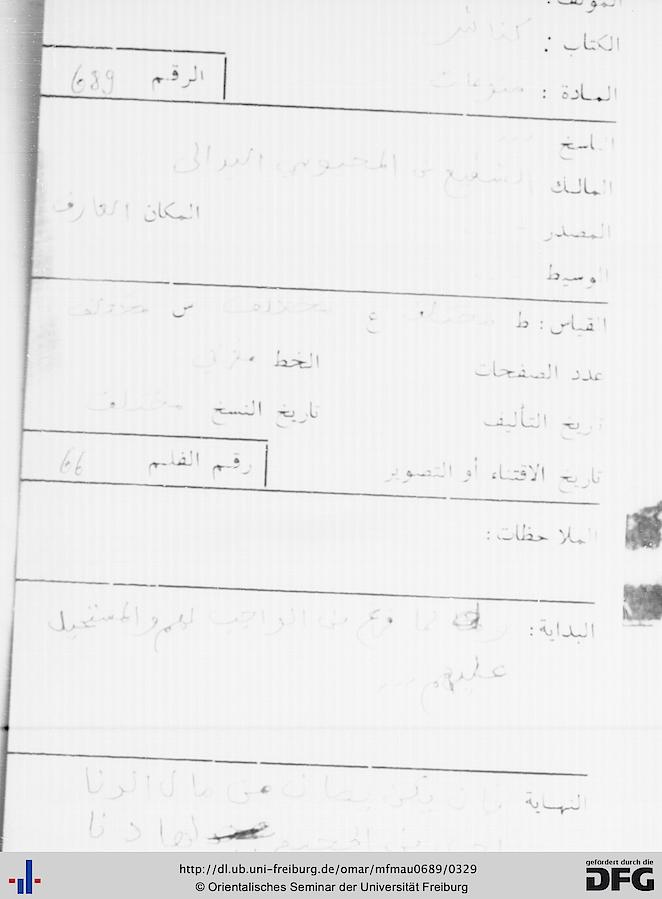 المؤلف :
الكتاب : كناش
الرقم 689
المادة : منوعات
الناسخ ...
المالك الشفيع بن المحبوبي اليدالي
المكان العارف
المصدر
الوسيط
القياس : ط مختلف ع مختلف س مختلف
عدد الصفحات الخط مغربي
تاريخ التأليف تاريخ النسخ مختلف
تاريخ الاقتناء أو التصوير رقم الفلم 66
الملاحظات :
البداية : لما فرغ من الواجب لهم والمستحيل
عليهم ...
النهاية من مال
http://dl.ub.uni-freiburg.de/omar/mfmau0689/0329
© Orientalisches Seminar der Universität Freiburg
gefördert durch die
DFG